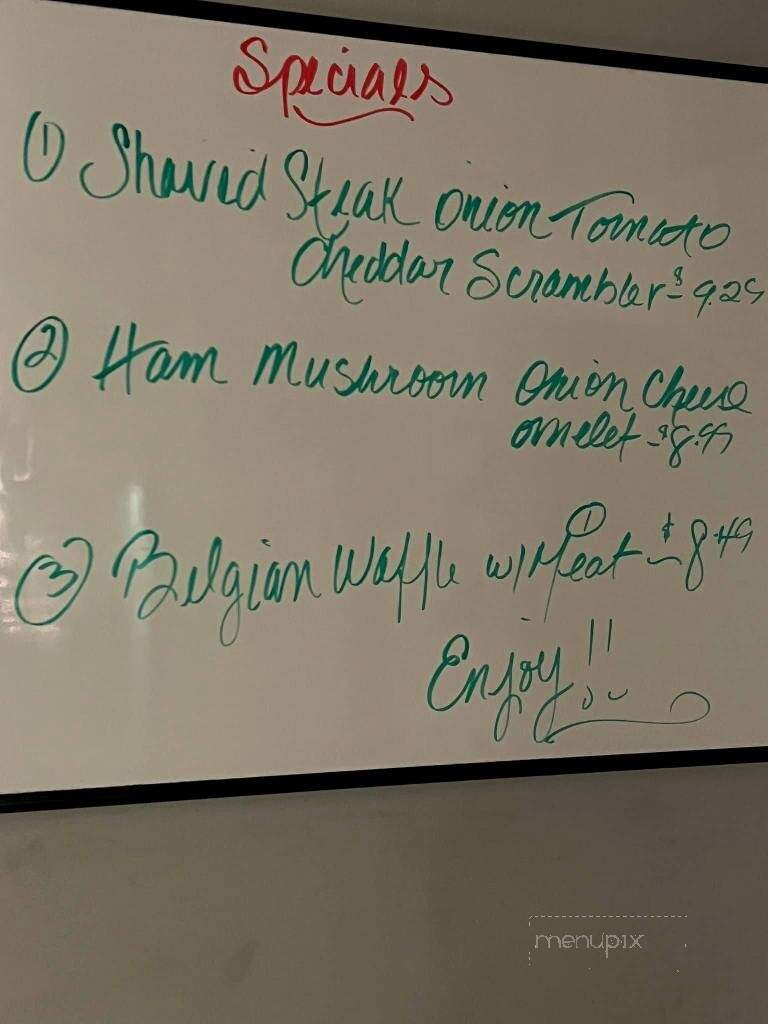 Specials
① Shaved Steak Onion Tomato
Cheddar Scrambler - $9.29
② Ham Mushroom Onion Cheese
omelet - $8.99
③ Belgian Waffle w/ ① Meat - $8.49
Enjoy!!
menupix